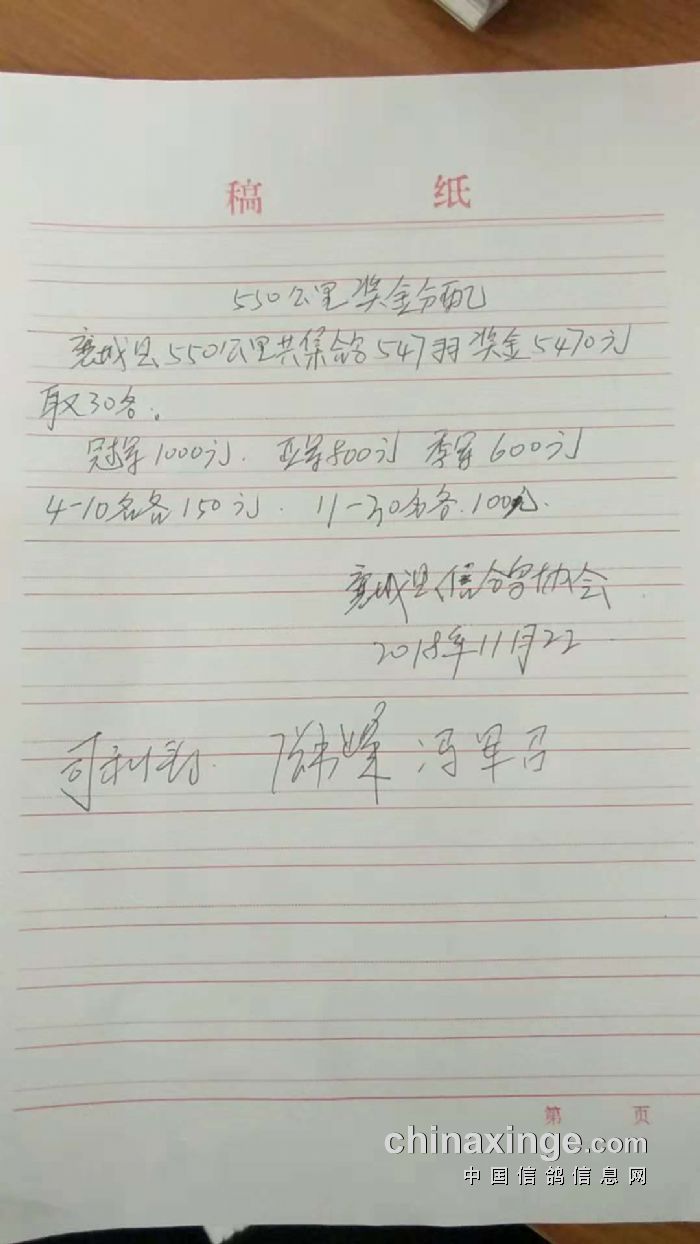 稿 纸
550公里奖金分配
襄城县550公里共集鸽547羽奖金5470元
取30名。
冠军1000元. 亚军800元 季军600元
4-10名各150元. 11-30名各100元.
襄城县信鸽协会
2018年11月22
冯军召
第 页
chinaxinge.com
中国信鸽信息网